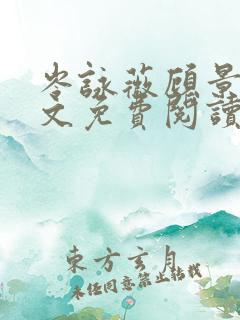 岑詠薇顾景
文免費閱讀
東方玄月
未经同意禁止转载